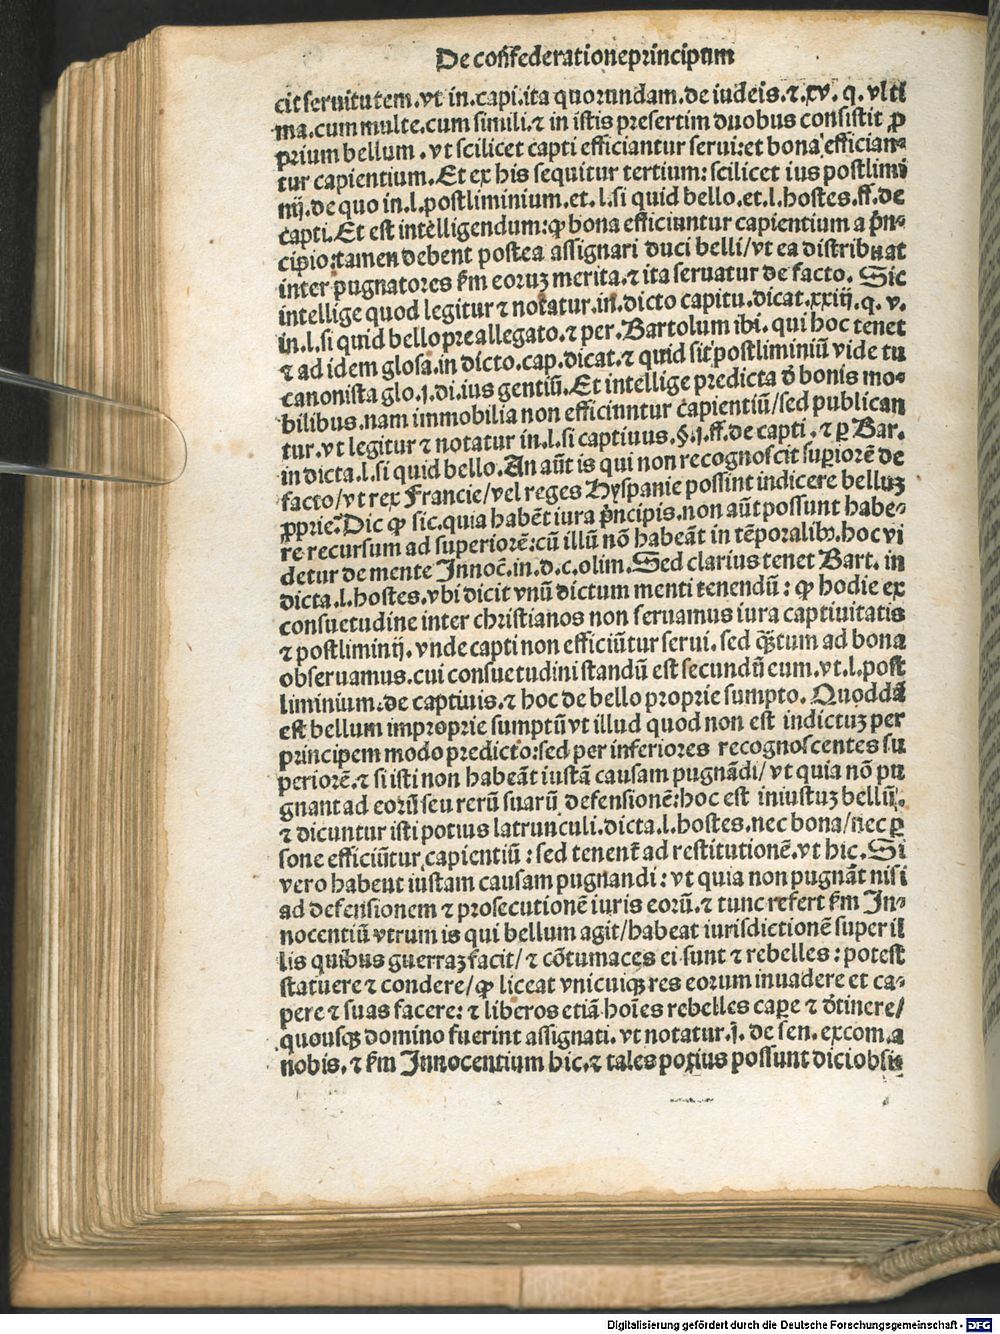 De cōfederationeprincipum
cit seruitutem.vt in.capi.ita quorundam.de iudeis.⁊.xv. q. vlti
ma.cum multe.cum simili.⁊ in istis presertim duobus consistit ꝓ
prium bellum . vt scilicet capti efficiantur serui:et bona effician-
tur capientium.Et ex his sequitur tertium: scilicet ius postlimi
nij.de quo in.l.postliminium.et.l.si quid bello.et.l.hostes.ff.de
capti.Et est intelligendum:ꝙ bona efficiuntur capientium a p̄n-
cipio:tamen debent postea assignari duci belli/vt ea distribuat
inter pugnatores ẜm eoruꝫ merita.⁊ ita seruatur de facto. Sic
intellige quod legitur ⁊ notatur.in.dicto capitu.dicat.xxiij.q. v.
in.l.si quid bello preallegato.⁊ per.Bartolum ibi. qui hoc tenet
⁊ ad idem glosa.in dicto.cap.dicat.⁊ quid sit postliminiū vide tu
canonista glo.j.di.ius gentiū.Et intellige predicta d̄ bonis mo-
bilibus.nam immobilia non efficiuntur capientiū/sed publican
tur.vt legitur ⁊ notatur in.l.si captiuus.§.j.ff.de capti.⁊ ꝑ Bar.
in dicta.l.si quid bello.An aūt is qui non recognoscit superiorē de
facto/vt rex Francie/vel reges Hyspanie possint indicere belluꝫ
ꝓprie.Dic ꝙ sic.quia habēt iura p̄ncipis.non aūt possunt habe-
re recursum ad superiorē:cū illū nō habeāt in tēporalibꝰ.hoc vi
detur de mente Innoc̄.in.d.c.olim.Sed clarius tenet Bart. in
dicta.l.hostes.vbi dicit vnū dictum menti tenendū : ꝙ hodie ex
consuetudine inter christianos non seruamus iura captiuitatis
⁊ postliminij. vnde capti non efficiūtur serui. sed qꝫtum ad bona
obseruamus.cui consuetudini standū est secundū eum.vt.l.post
liminium.de captiuis.⁊ hoc de bello proprie sumpto. Quoddā
est bellum improprie sumptū vt illud quod non est indictuꝫ per
principem modo predicto:sed per inferiores recognoscentes su
periorē.⁊ si isti non habeāt iustā causam pugnādi/ vt quia nō pu
gnant ad eorū seu rerū suarū defensionē:hoc est iniustuꝫ bellū.
⁊ dicuntur isti potius latrunculi.dicta.l.hostes.nec bona/nec ꝑ
sone efficiūtur capientiū : sed tenent̄ ad restitutionē.vt hic.Si
vero habent iustam causam pugnandi : vt quia non pugnāt nisi
ad defensionem ⁊ prosecutionē iuris eorū.⁊ tunc refert ẜm In-
nocentiū vtrum is qui bellum agit/habeat iurisdictionē super il
lis quibus guerraꝫ facit/ ⁊ cōtumaces ei sunt ⁊ rebelles : potest
statuere ⁊ condere/ꝙ liceat vnicuiqꝫ res eorum inuadere et ca-
pere ⁊ suas facere: ⁊ liberos etiā hoīes rebelles caꝑe ⁊ d̄tinere/
quousqꝫ domino fuerint assignati. vt notatur.j. de sen. excom.a
nobis. ⁊ ẜm Innocentium hic.⁊ tales potius possunt dici obsi
Digitalisierung gefördert durch die Deutsche Forschungsgemeinschaft - DFG